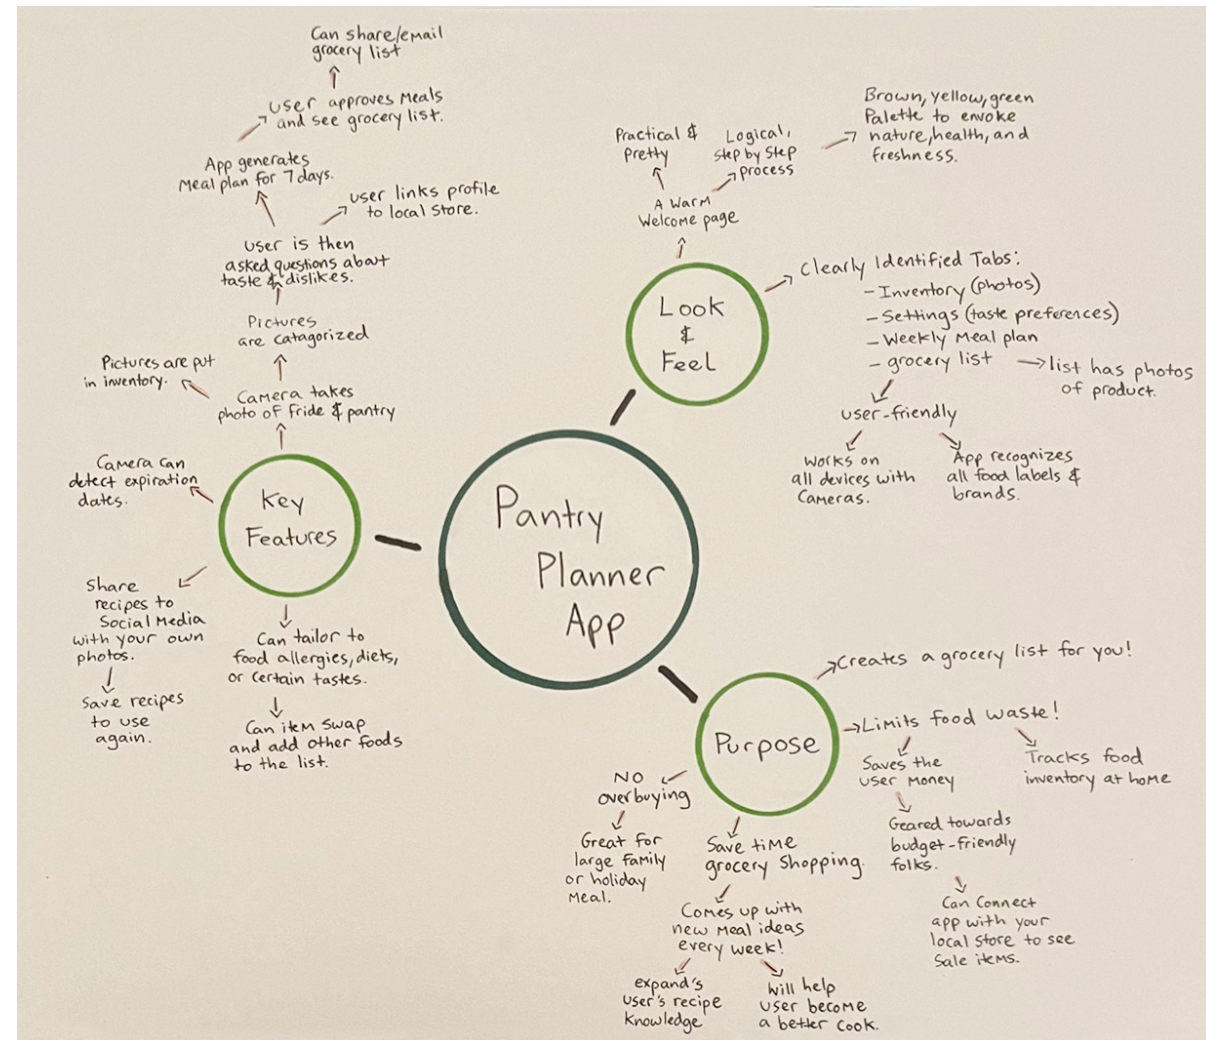 Can share/email
grocery list
User approves Meals
and see grocery list.
App generates
Meal plan for 7 days.
User links profile
to local Store.
User is then
asked questions about
taste & dislikes.
Pictures
are catagorized
Pictures are put
in inventory.
Camera takes
photo of fride & pantry
Camera can
detect expiration
dates.
Key
Features
Share
recipes to
Social Media
with your own
photos.
Save recipes
to use
again.
Can tailor to
food allergies, diets,
or certain tastes.
Can item swap
and add other foods
to the list.
Pantry
Planner
App
Look
&
Feel
A Warm
Welcome page
Practical &
Pretty
Logical,
step by step
process
Brown, yellow, green
Palette to envoke
nature, health, and
freshness.
Clearly Identified Tabs:
- Inventory (photos)
- Settings (taste preferences)
- Weekly Meal plan
- grocery list
list has photos
of product.
User-friendly
Works on
all devices with
Cameras.
App recognizes
all food labels &
brands.
Purpose
Creates a grocery list for you!
Limits food waste!
Saves the
user Money
Tracks food
inventory at home
Geared towards
budget-friendly
folks.
Can Connect
app with your
local store to see
Sale items.
NO
overbuying
Great for
large family
or holiday
Meal.
Save time
grocery Shopping.
Comes up with
new Meal ideas
every week!
expand's
User's recipe
Knowledge
Will help
user become
a better cook.